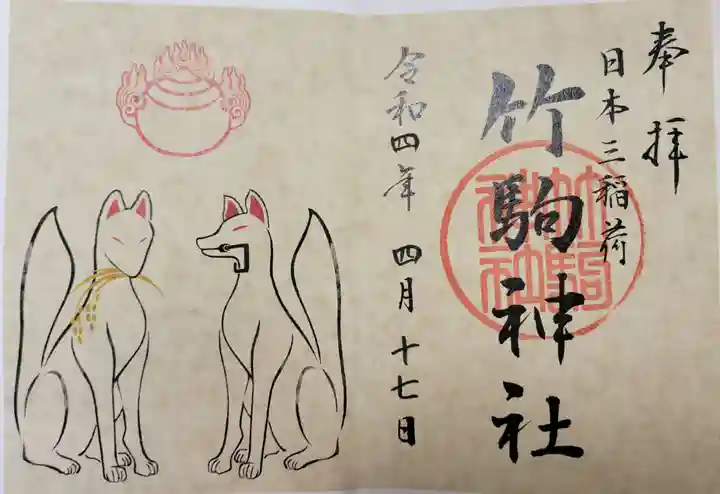 奉拝
日本三稲荷
竹駒神社
竹駒神社
令和四年 四月 十七日